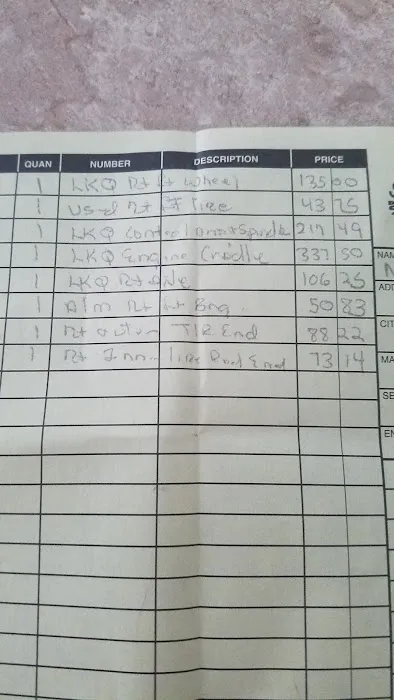 QUAN NUMBER DESCRIPTION PRICE
1 LKQ Rt Ft Wheel 135 00
1 Used Rt Ft Tire 43 75
1 LKQ Control Arm & Spindle 217 49
1 LKQ Engine Cradle 337 50
1 LKQ Rt Axle 106 25
1 A/m Rt Ft Brng. 50 83
1 Rt outer T/R End 88 22
1 Rt Inn Tire Rod End 73 14
NAM
ADD
CIT
MA
SE
EN